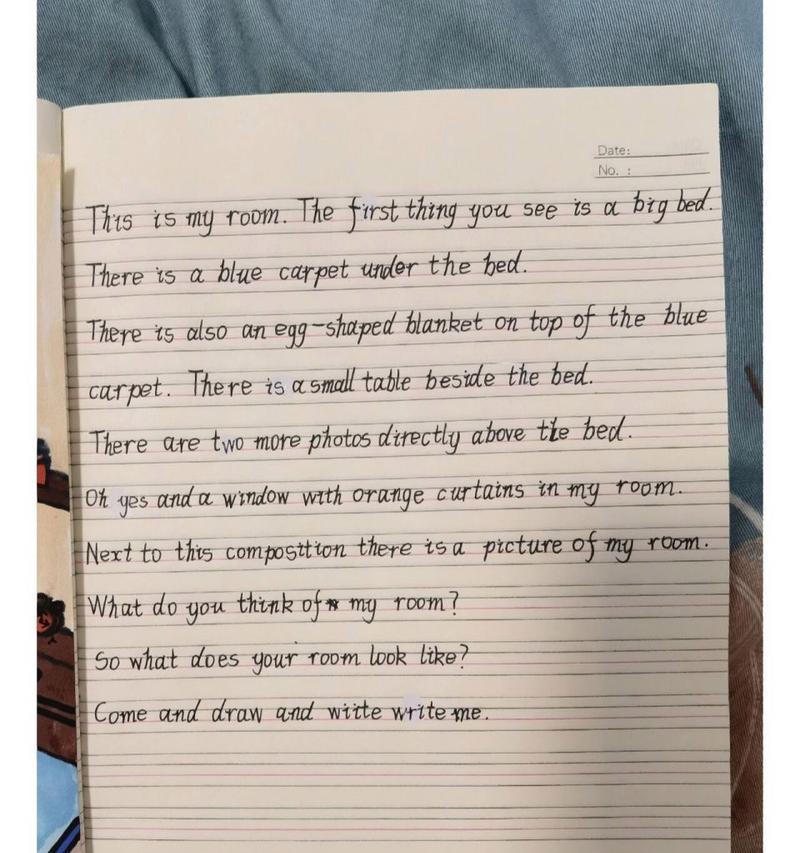 Date:
No. :
This is my room. The first thing you see is a big bed.
There is a blue carpet under the bed.
There is also an egg-shaped blanket on top of the blue
carpet. There is a small table beside the bed.
There are two more photos directly above the bed.
Oh yes and a window with orange curtains in my room.
Next to this composition there is a picture of my room.
What do you think of my room?
So what does your room look like?
Come and draw and witte write me.